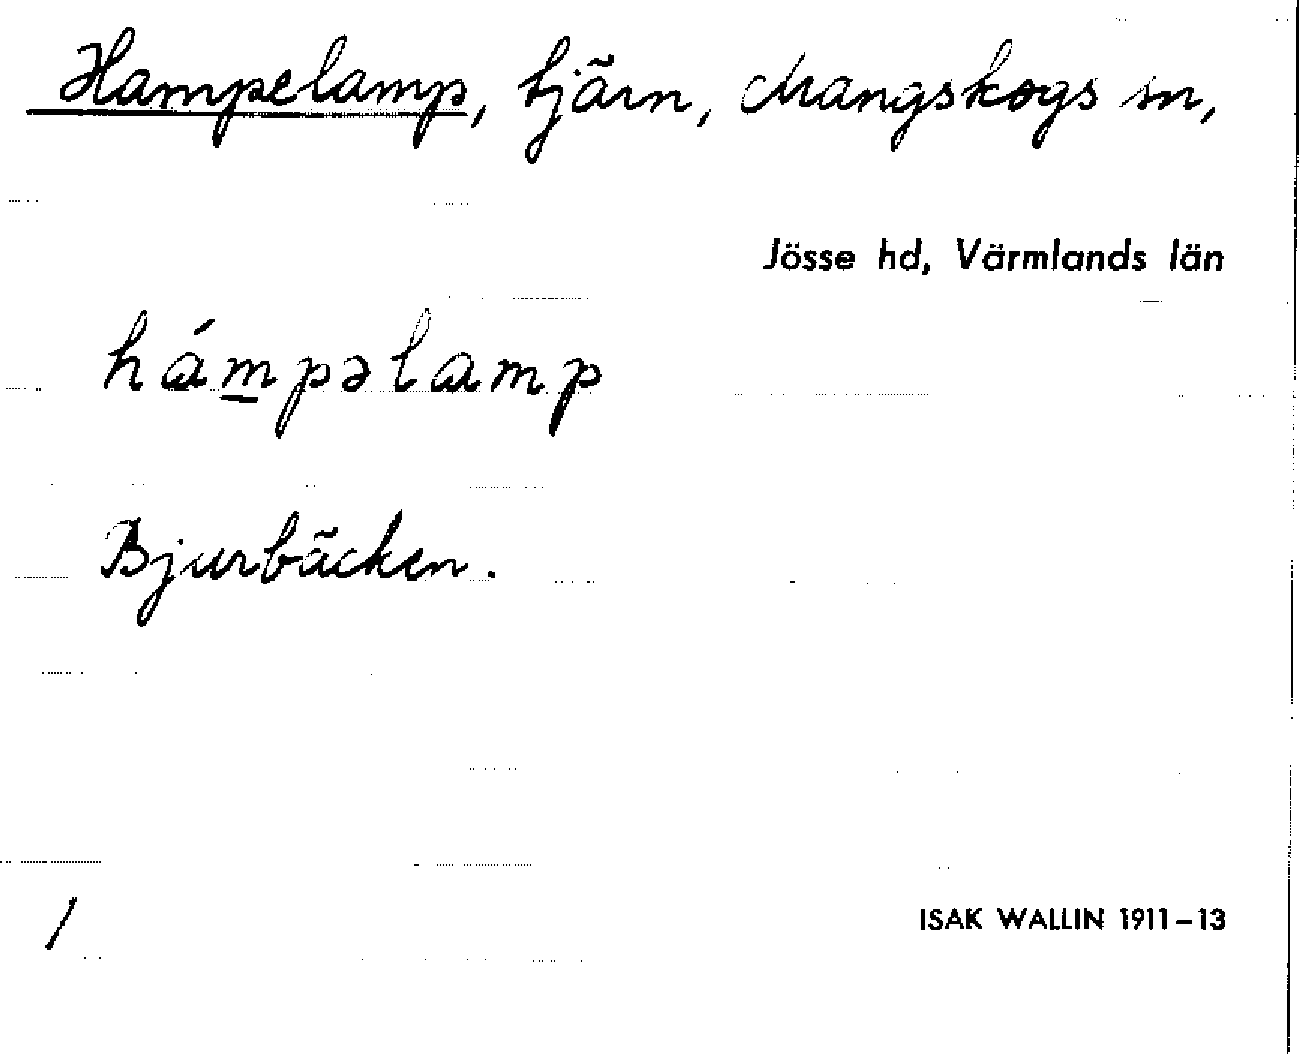 Hampelamp, tjärn, Mangskogs sn,
Jösse hd, Värmlands län
hám̲pəlamp
Bjurbäcken.
/
ISAK WALLIN 1911–13